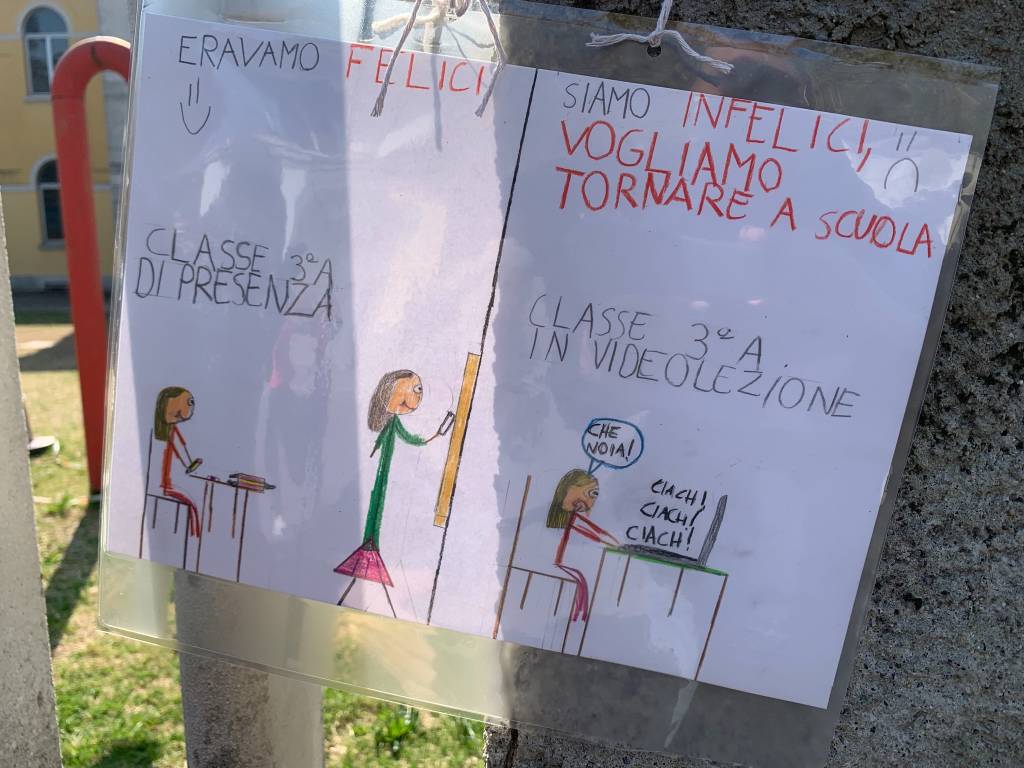 ERAVAMO FELICI
CLASSE 3ªA
DI PRESENZA
SIAMO INFELICI,
VOGLIAMO
TORNARE A SCUOLA
CLASSE 3ªA
IN VIDEOLEZIONE
CHE
NOIA!
CIACH!
CIACH!
CIACH!